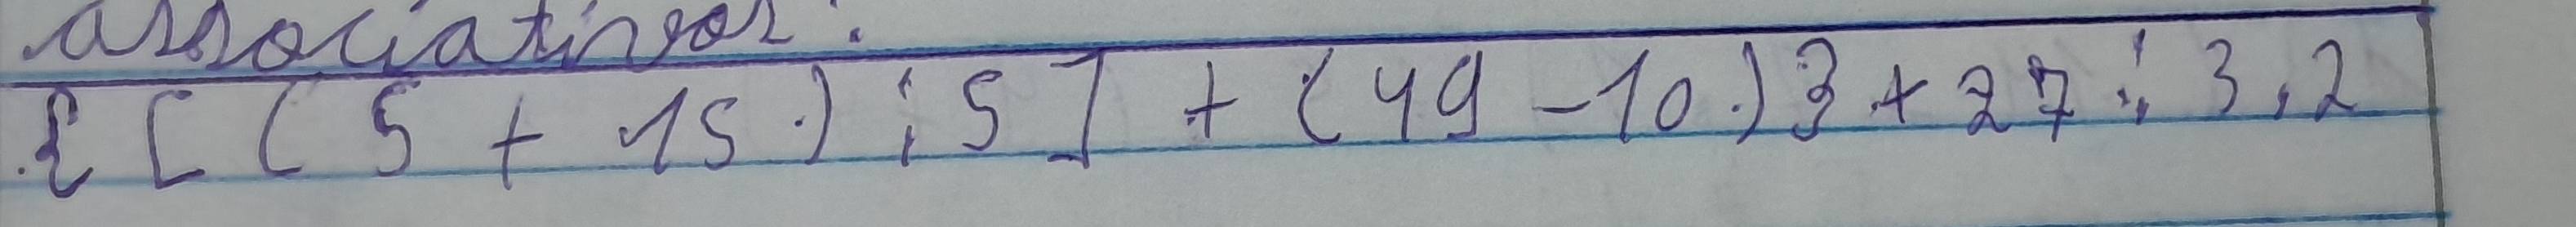 associativos:
{ [ ( 5 + 15 ) : 5 ] + ( 49 - 10 ) 3 + 27 : 3,2